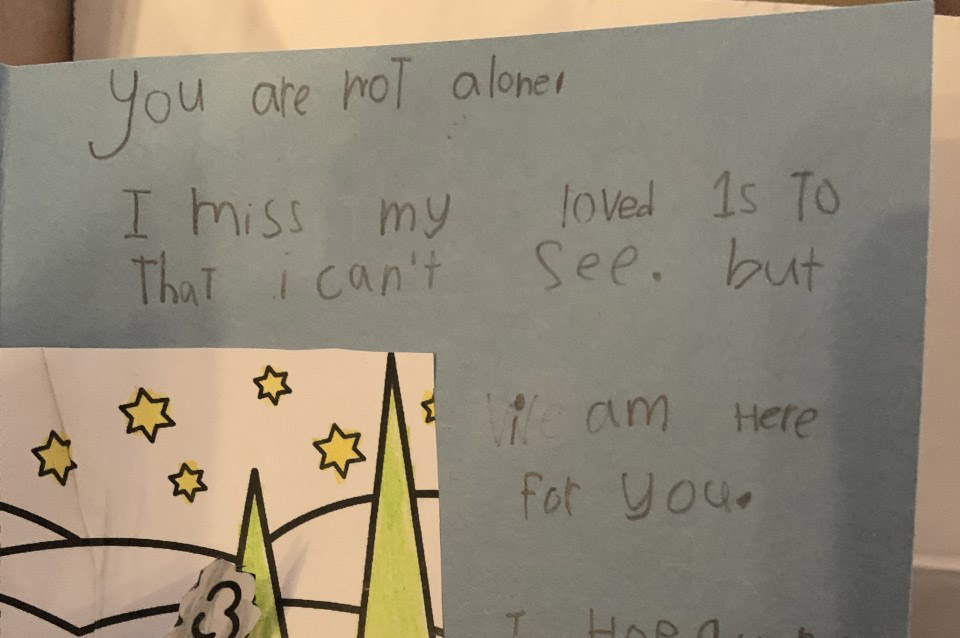 You are not alone,
I miss my loved 1s To
That i can't See. but
i am Here
for you.
3
I Hope